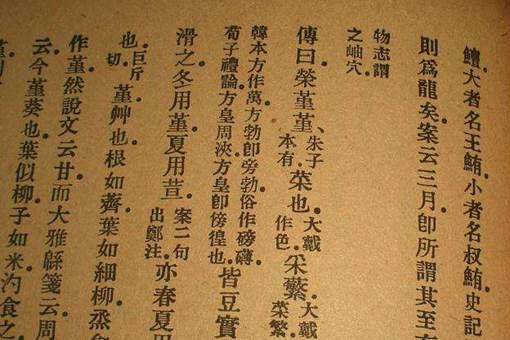 鱣大者名王鮪小者名叔鮪史記
則爲龍矣案云三月卽所謂其至
物志謂
之岫穴
傳曰榮菫菫、朱子本有菜也大戴作色采蘩大戴菜繁
韓本方作萬方勃卽旁勃俗作磅礴
荀子禮論方皇周浹方皇卽傍徨也皆豆實
滑之冬用菫夏用荁案二句出鄭注亦春夏
也巨斤切菫艸也根如薺葉如細柳烝
作菫然說文云甘而大雅緜箋云周
云今菫葵也葉似柳子如米汋食之